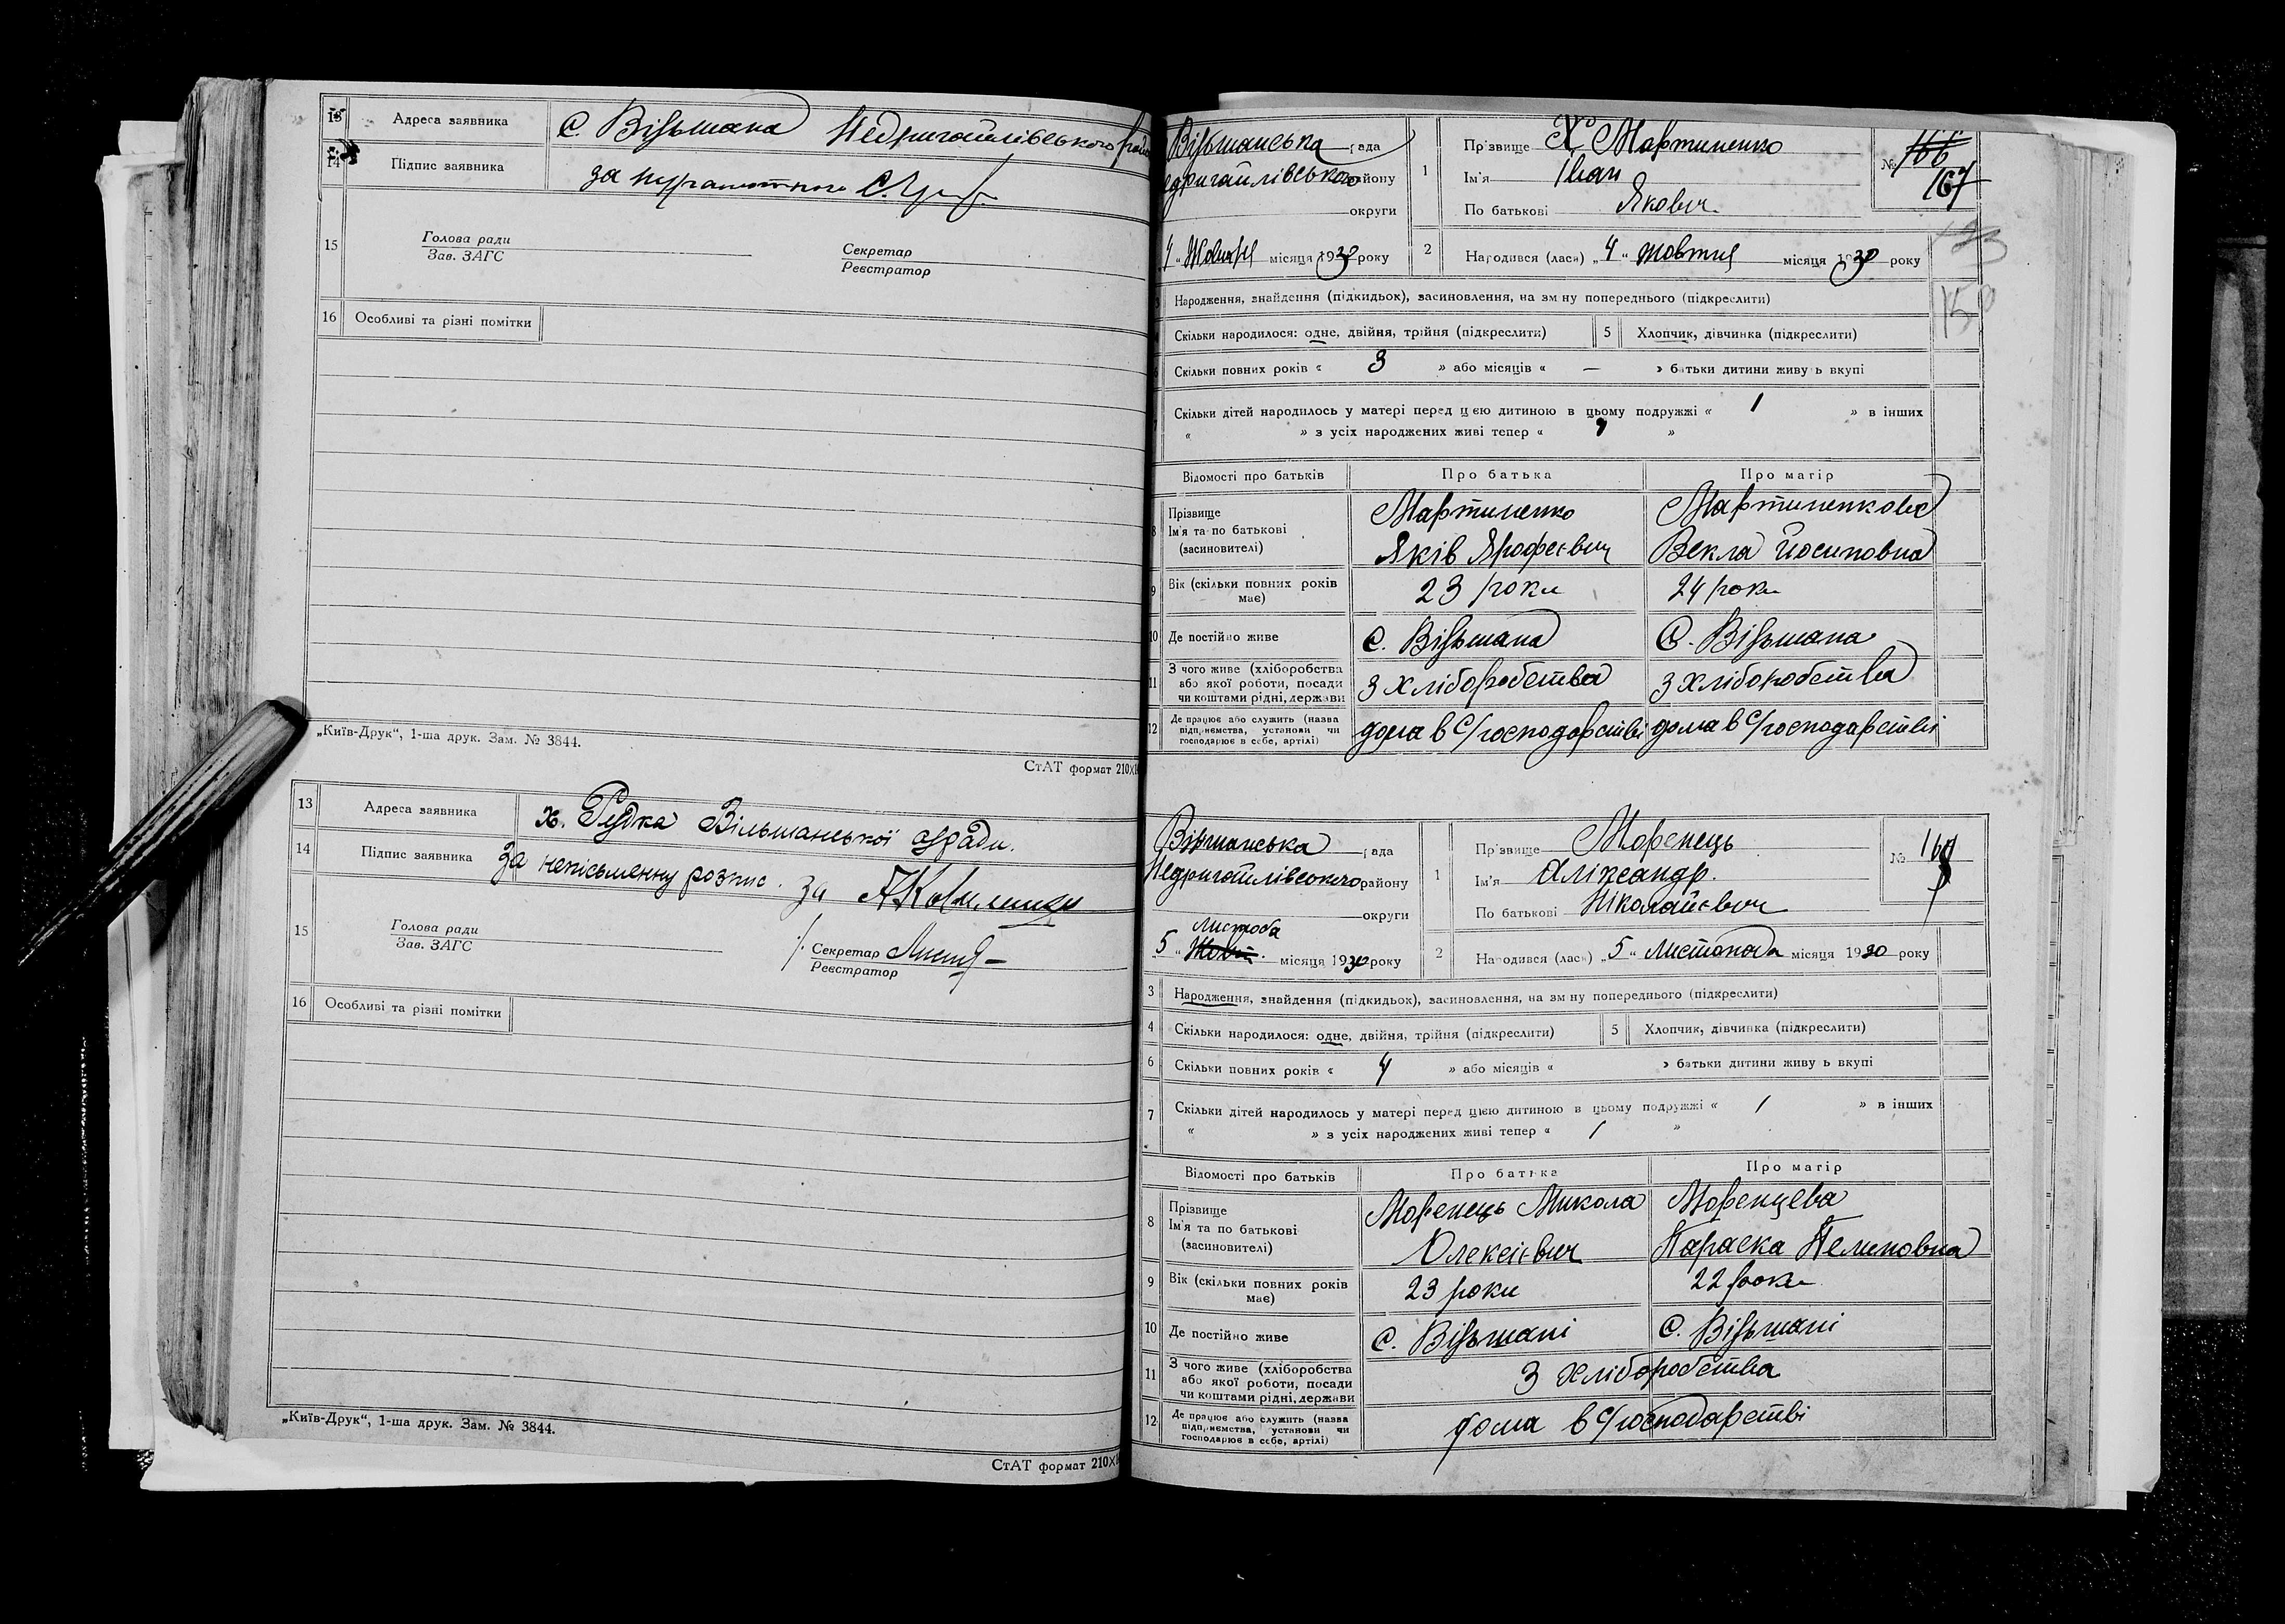 13 Адреса заявника с. Вільшана Недригайлівського району
14 Підпис заявника за неграмотного
15 Голова ради
Зав. ЗАГС
Секретар
Реєстратор
16 Особливі та різні помітки
„Київ-Друк“, 1-ша друк. Зам. № 3844.
СтАТ формат 210×1
13 Адреса заявника х. Рудка Вільшанської с/ради.
14 Підпис заявника За неписьменну розпис. за
15 Голова ради
Зав. ЗАГС
Секретар
Реєстратор
16 Особливі та різні помітки
„Київ-Друк“, 1-ша друк. Зам. № 3844.
СтАТ формат 210×1
Вільшанська рада
едригайлівського району
округи
4 " Жовтня місяця 1930 року
1 Прізвище Мартиненко
Ім'я Іван
По батькові Якович
№ 166
167
2 Народився (лася) „ 4 “ жовтня місяця 1930 року
150
Народження, знайдення (підкидьок), засиновлення, на зм ну попереднього (підкреслити)
Скільки народилося: одне, двійня, трійня (підкреслити) 5 Хлопчик, дівчинка (підкреслити)
Скільки повних років « 3 » або місяців « — » батьки дитини живу ь вкупі
Скільки дітей народилось у матері перед цією дитиною в цьому подружжі « 1 » в інших
« » з усіх народжених живі тепер « 1 »
Відомості про батьків Про батька Про матір
8 Прізвище Мартиненко Мартиненкова
Ім'я та по батькові
(засиновителі) Яків Ярофеєвич Векла Йосиповна
9 Вік (скільки повних років має) 23 роки 24 роки
10 Де постійно живе с. Вільшана С. Вільшана
11 З чого живе (хліборобства
або якої роботи, посади
чи коштами рідні, держави З хліборобства З хліборобства
12 Де працює або служить (назва
підприємства, установи чи
господарює в себе, артілі) дома в с/господарстві дома в с/господарстві
Вільшанська рада
Недригайлівського району
округи
Листопа
5 " Жовт. місяця 1930 року
1 Прізвище Моренець
Ім'я Аліксандр.
По батькові Ніколайєвич
№ 167
2 Народився (лася) „ 5 “ Листопада місяця 1930 року
3 Народження, знайдення (підкидьок), засиновлення, на зм ну попереднього (підкреслити)
4 Скільки народилося: одне, двійня, трійня (підкреслити) 5 Хлопчик, дівчинка (підкреслити)
6 Скільки повних років « 4 » або місяців « » батьки дитини живу ь вкупі
7 Скільки дітей народилось у матері перед цією дитиною в цьому подружжі « 1 » в інших
« » з усіх народжених живі тепер « 1 »
Відомості про батьків Про батька Про матір
8 Прізвище Моренець Микола Моренцева
Ім'я та по батькові
(засиновителі) Олексієвич Параска Пелиповна
9 Вік (скільки повних років має) 23 роки 22 роки
10 Де постійно живе С. Вільшані С. Вільшані
11 З чого живе (хліборобства
або якої роботи, посади
чи коштами рідні, держави З хліборобства
12 Де працює або служить (назва
підприємства, установи чи
господарює в себе, артілі) дома в с/господарстві